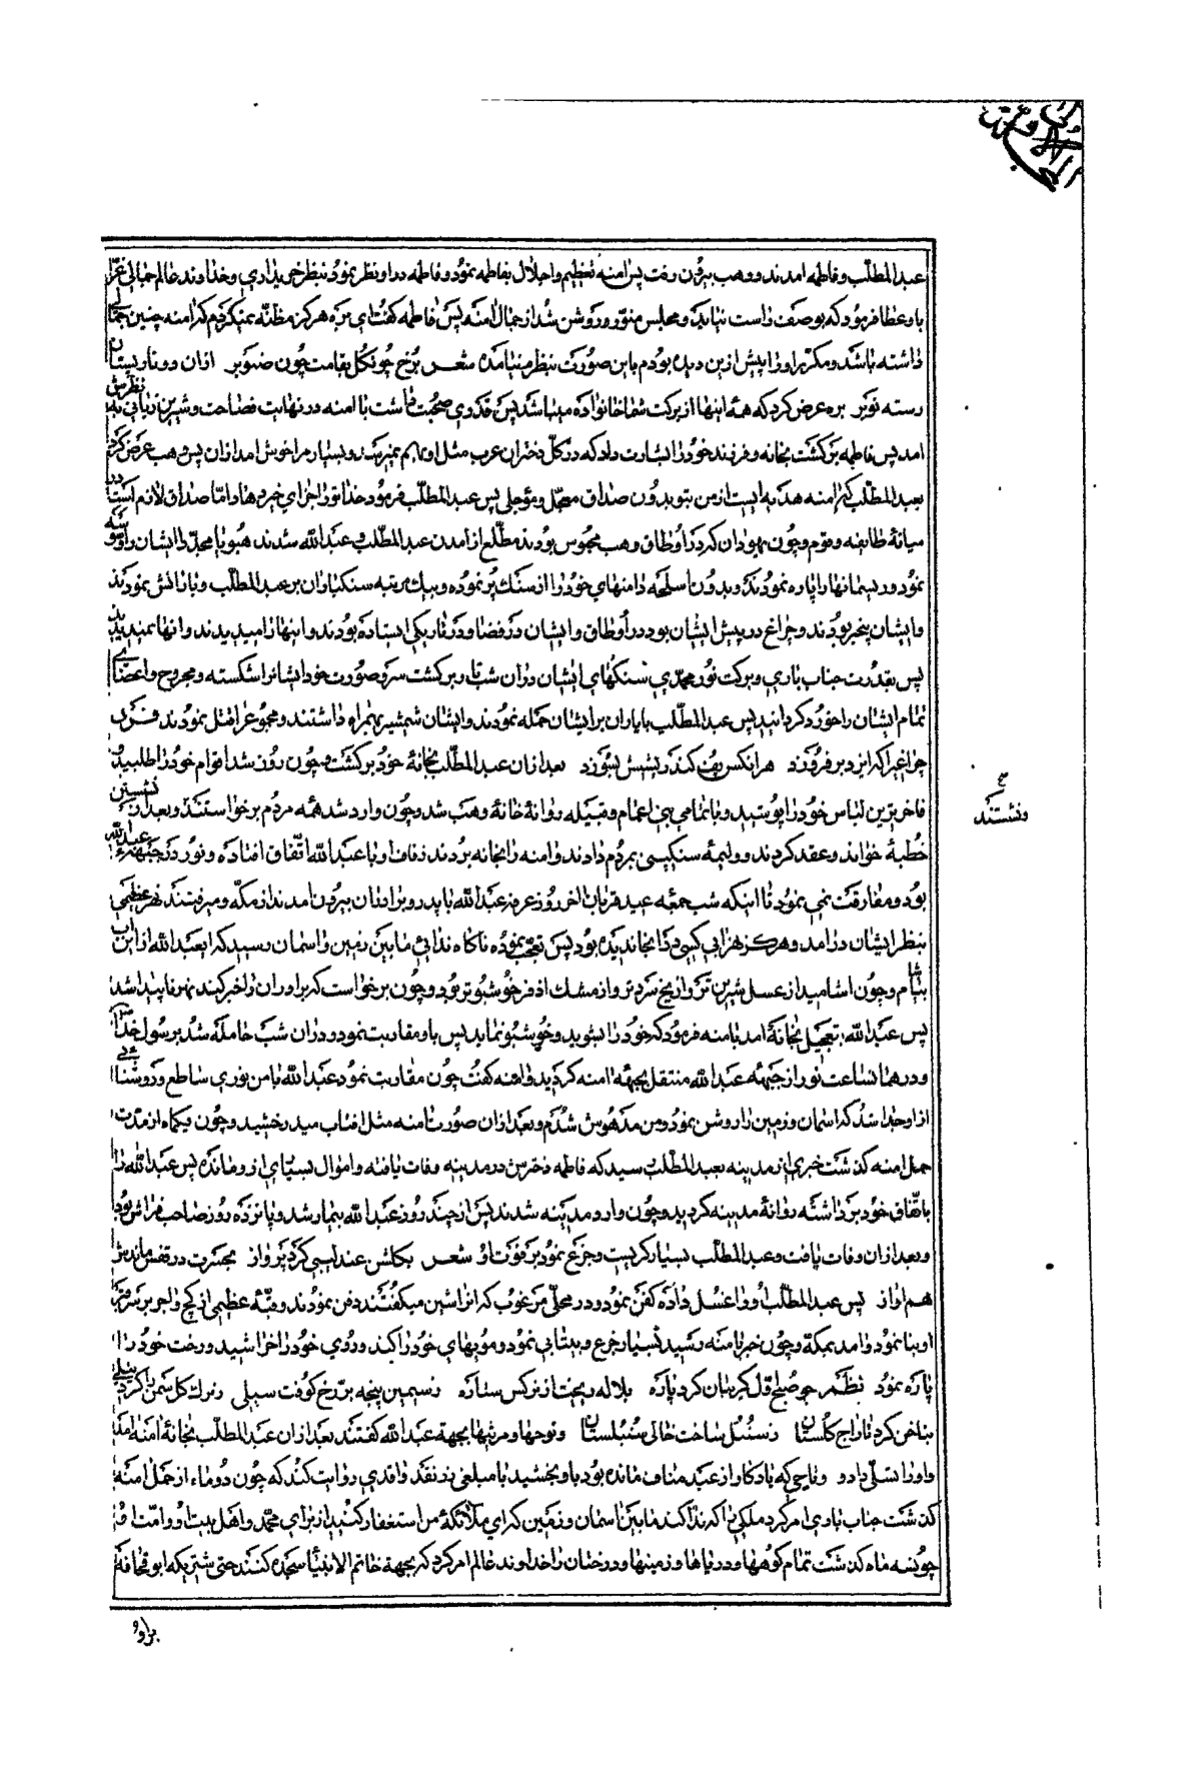 عبد المطلّب و فاطمه امدند و وهب بیرون رفت پس امنه تعظیم و اجلال بفاطمه نمود و فاطمه در او نظر نمود بنظر خریداری و خداوند عالم جمالی غرّا
باو عطا فرمود که بوصف راست نیاید و مجلس منوّر و روشن شد از جمال امنه پس فاطمه گفت ای برّه هرگز مظنّه نمیکردم که امنه چنین جمالی
داشته باشد و مکرّر او را پیش از این دیده بودم باین صورت بنظرم نیامده شعر برخ چون گل بقامت چون صنوبر ازان دو نار پستان
رسته نوبر برّه عرض کرد که همه اینها از برکت شما خانواده میباشد پس قدری صحبت داشت با امنه در نهایت فصاحت و شیرین زبانی بنظرش
امد پس فاطمه برگشت بخانه و فرزند خود را بشارت داد که در کل دختران عرب مثل او بهم نمیرسد و بسیار مرا خوش امد ازان پس وهب عرض کرد
بعبد المطّلب که امنه هدیه ایست از من بتو بدون صداق معجّل و مؤجلی پس عبد المطّلب فرمود خدا تو را جزای خیر دهاد امّا صداق لازم است در
میانهٔ طایفه و قوم و چون یهودان که در اوطاق وهب محبوس بودند مطّلع از امدن عبد المطّلب و عبد الله شدند هبوبا مجدّدا ایشان را وسوسه
نمود و ریسمانها را پاره نمودند و بدون اسلحه دامنهای خود را از سنک پر نموده و بیک مرتبه سنکباران بر عبد المطّلب و یارانش نمودند
و ایشان بیخبر بودند و چراغ در پیش ایشان بود در اوطاق و ایشان در فضا و در تاریکی ایستاده بودند و اینها را میدیدند و انها نمیدیدند
پس بقدرت جناب باری و برکت نور محمّدی سنکهای ایشان دران شب تار برگشت سر و صورت خود ایشانرا شکسته و مجروح و اعضای
تمام ایشان را خورد کردانید پس عبد المطّلب با یاران بر ایشان حمله نمودند و ایشان شمشیر بهمراه داشتند و مجموع را قتل نمودند فرد
چراغیرا که ایزد بر فروزد هر انکس پف کند ریشش بسوزد بعد ازان عبد المطّلب بخانهٔ خود برگشت چون روز شد اقوام خود را طلبید
فاخرترین لباس خود را پوشید و با تمامی بنی اعمام و قبیله روانهٔ خانهٔ وهب شد و چون وارد شد همه مردم برخواستند و بعد از نشستن
و نشستند
خطبهٔ خواند و عقد کردند و ولیمهٔ سنکینی بمردم دادند و امنه را بخانه بردند زفاف او با عبد الله اتّفاق افتاده و نور در جبههٔ عبد الله
بود و مفارقت نمی نمود تا اینکه شب جمعه عید قربان اخر روز عرفه عبد الله با پدر و برادران بیرون امدند از مکّه و میرفتند نهر عظیمی
بنظر ایشان درامد و هرکز نهر ابی کسی در انجا ندیده بود پس تعجّب نموده ناکاه ندائی مابین زمین و اسمان رسید که ایعبد الله از این اب
بیاشام و چون اشامید از عسل شیرین تر و از یخ سردتر و از مشک اذفر خوشبوتر بود و چون برخواست که برادران را خبر کند نهر ناپیدا شد
پس عبد الله بتعجیل بخانهٔ امد بامنه فرمود که خود را بشوید و خوشبو نماید پس باو مقاربت نمود و دران شب حامله شد برسول خدا
و در همان ساعت نور از جبههٔ عبد الله منتقل بجبههٔ امنه کردید و امنه کفت چون مقاربت نمود عبد الله با من نوری ساطع و روشنائی
از او جدا شد که اسمان و زمین را روشن نمود و من مدهوش شدم و بعد ازان صورت امنه مثل افتاب میدرخشید و چون یکماه از مدّت
حمل امنه کذشت خبری از مدینه بعبد المطّلب رسید که فاطمه دخترش در مدینه وفات یافته و اموال بسیاری از او مانده پس عبد الله را
باتّفاق خود برداشته روانهٔ مدینه کردید و چون وارد مدینه شدند پس از چند روز عبد الله بیمار شد و پانزده روز صاحب فراش بود
و بعد ازان وفات یافت و عبد المطّلب بسیار کریست و جزع نمود بر فوت او شعر بکلشن عندلیبی کرد پرواز بحسرت در قفس ماندش
هم اواز پس عبد المطّلب او را غسل داده کفن نمود و در محلّی مرغوب که انرا شین میکفتند دفن نمودند و قبّه عظیمی از کچ و اجر بر سر قبر
او بنا نمود و امد بمکّه و چون خبر بامنه رسید بسیار جزع و بیتابی نمود و مویهای خود را کند و روی خود را خراشید و رخت خود را
پاره نمود نظم چو صبح اوّل کریبان کرد پاره بلاله ریخت از نرکس ستاره ز سیمین پنجه بر رخ کوفت سیلی ز نیلی کل سمن را کرد نیلی
بناخن کرد تاراج کلستان ز سنبل ساخت خالی سنبلستان و نوحها و مرثیها بجههٔ عبد الله کفتند بعد ازان عبد المطّلب بخانهٔ امنه امد
و او را تسلّی داد و تاجی که یادکار از عبد مناف مانده بود باو بخشید با مبلغی زر نقد واقدی روایت کند که چون دو ماه از حمل امنه
کذشت جناب باری امر کرد ملکی را که ندا کند مابین اسمان و زمین که ای ملائکهٔ من استغفار کنید از برای محمّد و اهل بیت او و امّت او
چون سه ماه کذشت تمام کوهها و دریاها و زمینها و درختان را خداوند عالم امر کرد که بجههٔ خاتم الانبیا سجده کنند حتی شتریکه ابو قحافه
براو